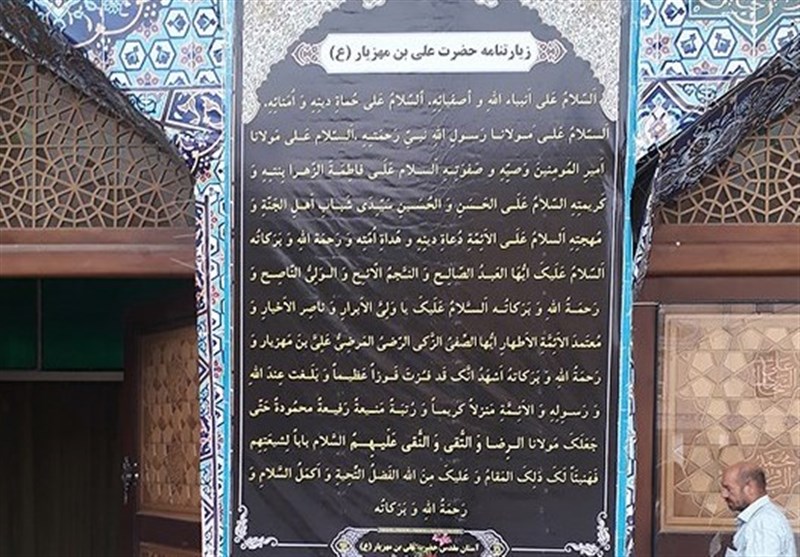 زیارتنامه حضرت علی بن مهزیار (ع)
اَلسَّلامُ عَلی اَنبیاءِ الله وَ اَصفیائِهِ. اَلسَّلامُ عَلی حُماةِ دینِهِ وَ اُمَنائِهِ.
اَلسَّلامُ عَلی مَولانا رَسولِ اللهِ نَبیِّ رَحمَتِهِ .اَلسَّلام عَلی مَولانا
اَمیرِ المُومِنینَ وَصیِّهِ وَ صَفوَتِهِ اَلسلام عَلَی فاطِمَةَ الزَهرا بِنتِهِ وَ
کَریمَتِهِ السَّلامُ عَلَی الحَسَنِ وَ الحُسَینِ سَیِّدَی شَبابِ اَهلِ الجَنَّةِ وَ
مُهجَتِهِ اَلسلامُ عَلَی الاَئِمَّةِ دُعاةِ دینِهِ وَ هُداةِ اُمَّتِهِ وَ رَحمَةُ اللهِ وَ بَرَکاتُهُ
اَلسَّلامُ عَلَیکَ اَیُّهَا العَبدُ الصّالِح وَ النَّجمُ الائِح وَ الوَلیُّ النّاصِح وَ
رَحمَةُ اللهِ وَ بَرَکاتُه اَلسَّلامُ عَلَیکَ یا وَلِیَّ الاَبرارِ وَ ناصِرَ الاَخیارِ وَ
مُعتَمِدَ الاَئِمَّةِ الاَطهارِ اَیُّها الصَّفیُّ الزَّکی الرَضیُّ المَرضیُّ عَلیِّ بن مَهزیار وَ
رَحمَةُ اللهِ وَ بَرَکاتُهُ اَشهَدُ اَنَّکَ قَد فُزتَ فَوزاً عَظیماً وَ بَلَغتَ عِندَ اللهِ
وَ رَسولِهِ وَ الاَئِمَّةِ مَنزِلاً کَریماً وَ رُتبَةً مَنیعَةً رَفیعَةً مَحمودَةً حَتّی
جَعَلَکَ مَولانا الرِضا وَ التَّقی وَ النَّقی عَلَیهِمُ السَّلام باباً لِشیعَتِهِم
فَهَنیئاً لَکَ ذلِکَ المَقامُ وَ عَلَیکَ مِنَ الله الفَضلُ التَّحیةِ وَ اَکمَلُ السَّلامِ وَ
رَحمَةُ اللهِ وَ بَرَکاتُه
آستان مقدس حضرت علی بن مهزیار (ع)